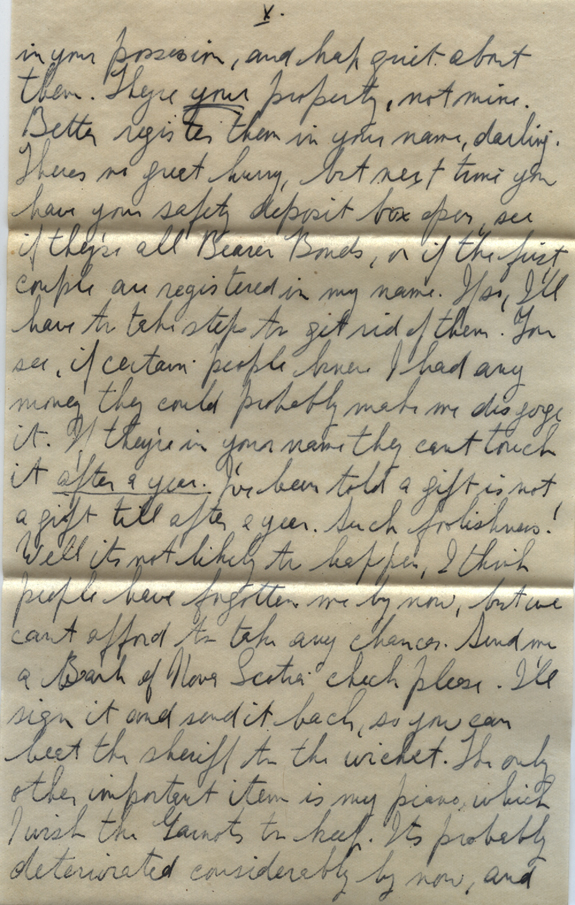 V.
in your possession, and kept quiet about
them. They're your property, not mine.
Better register them in your name, darling.
There's no great hurry, but next time you
have your safety deposit box open, see
if they're all Bearer Bonds, or if the first
couple are registered in my name. If so, I'll
have to take steps to get rid of them. You
see, if certain people knew I had any
money they could probably make me disgorge
it. If they're in your name they can't touch
it after a year. I've been told a gift is not
a gift till after a year. Such foolishness!
Well its not likely to happen, I think
people have forgotten me by now, but we
cant afford to take any chances. Send me
a Bank of Nova Scotia check please. I'll
sign it and send it back, so you can
beat the sheriff to the wicket. The only
other important item is my piano, which
I wish the to keep. Its probably
deteriorated considerably by now, and